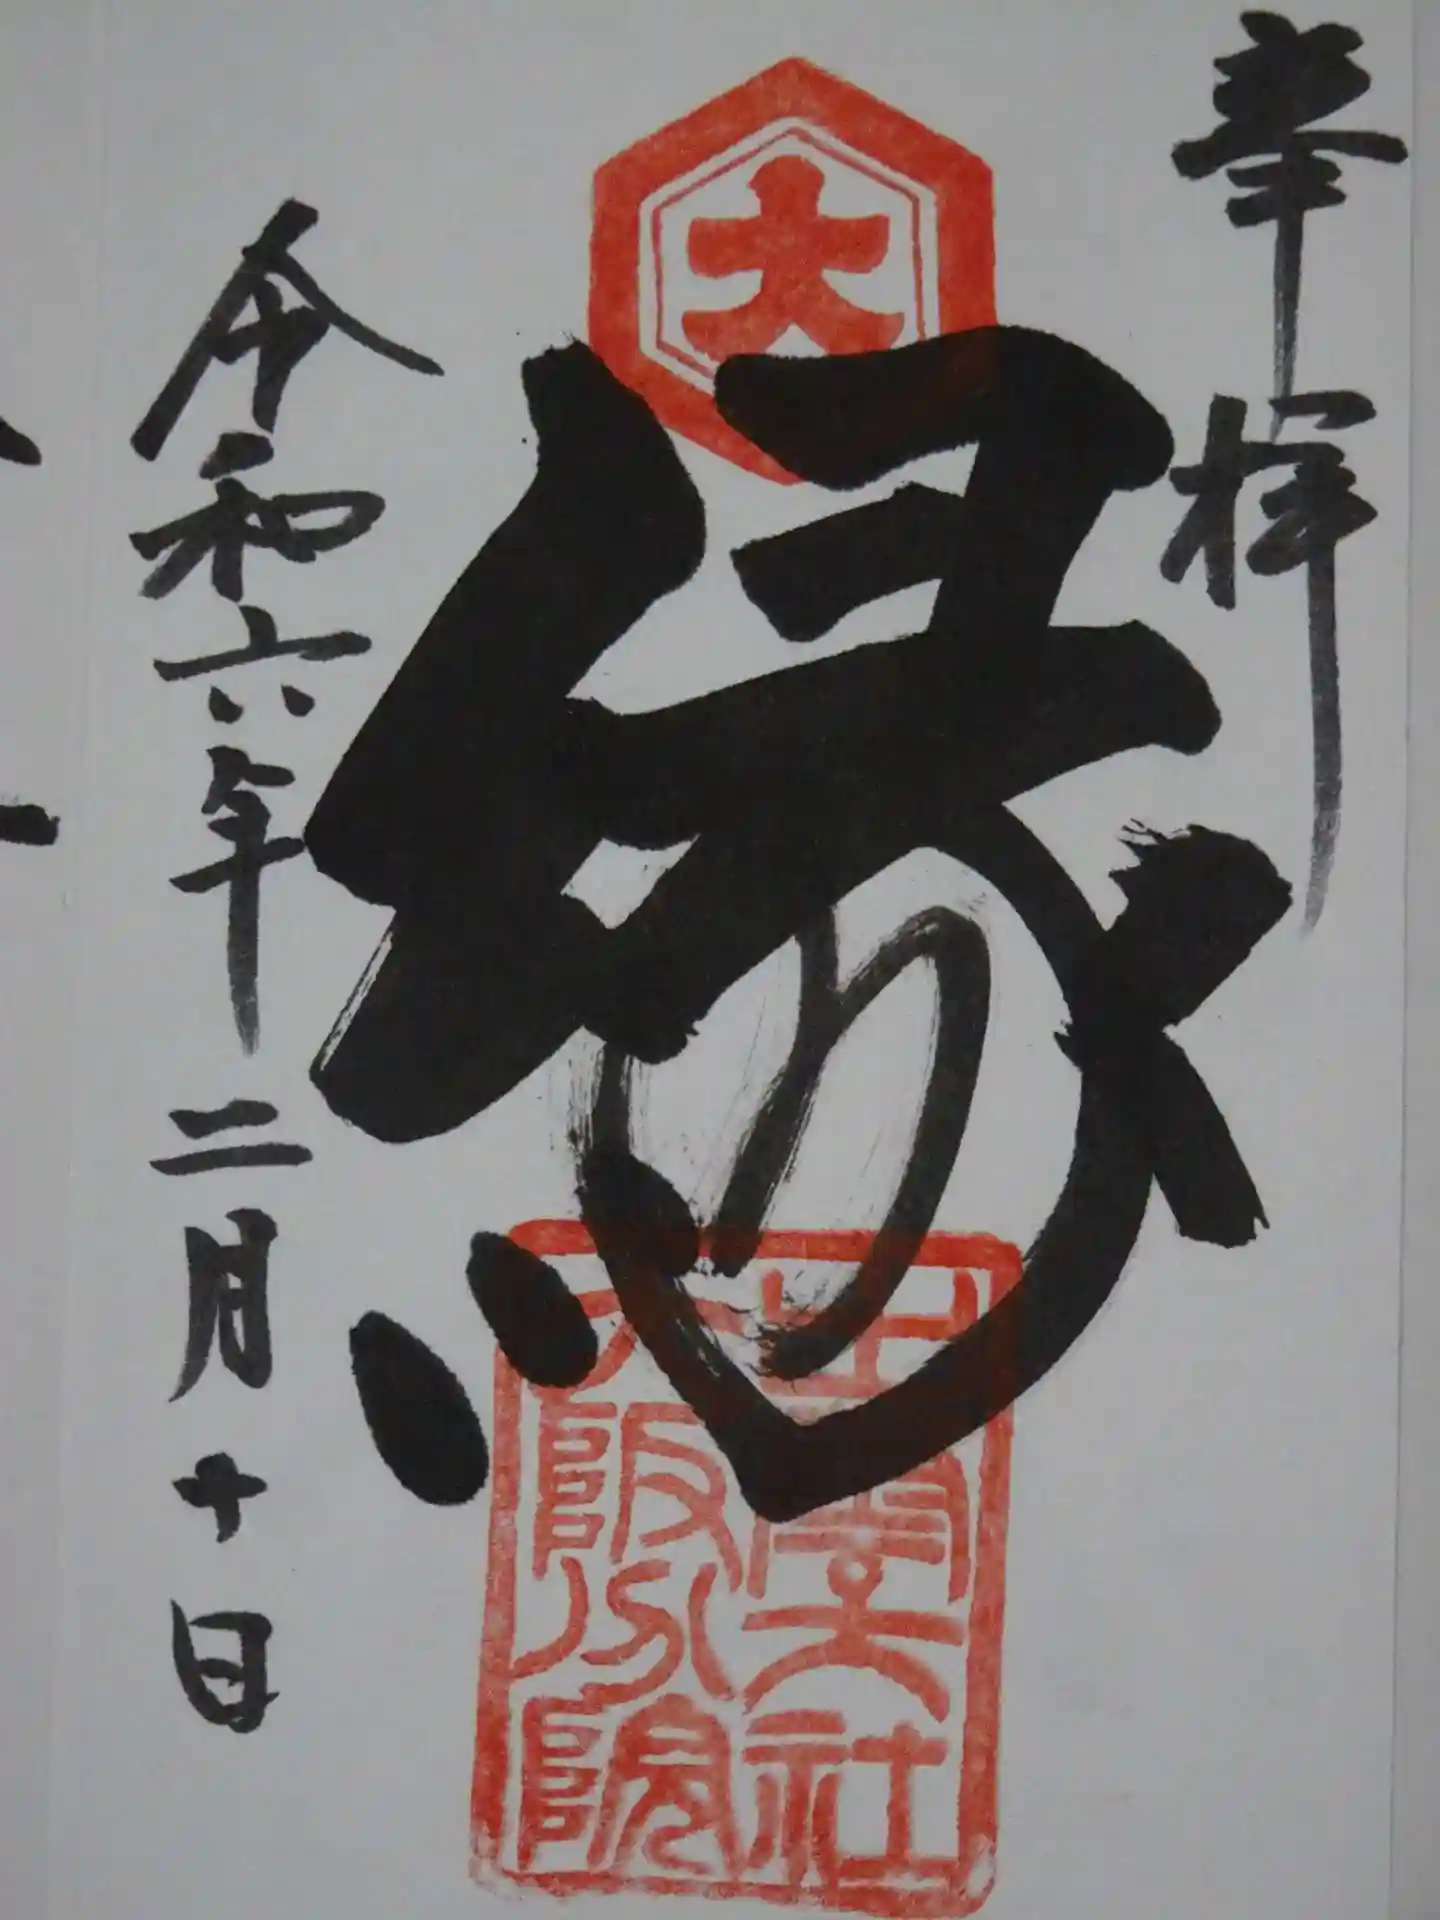 奉拝
大
縁
出雲大社
大阪分院
令和六年二月十日